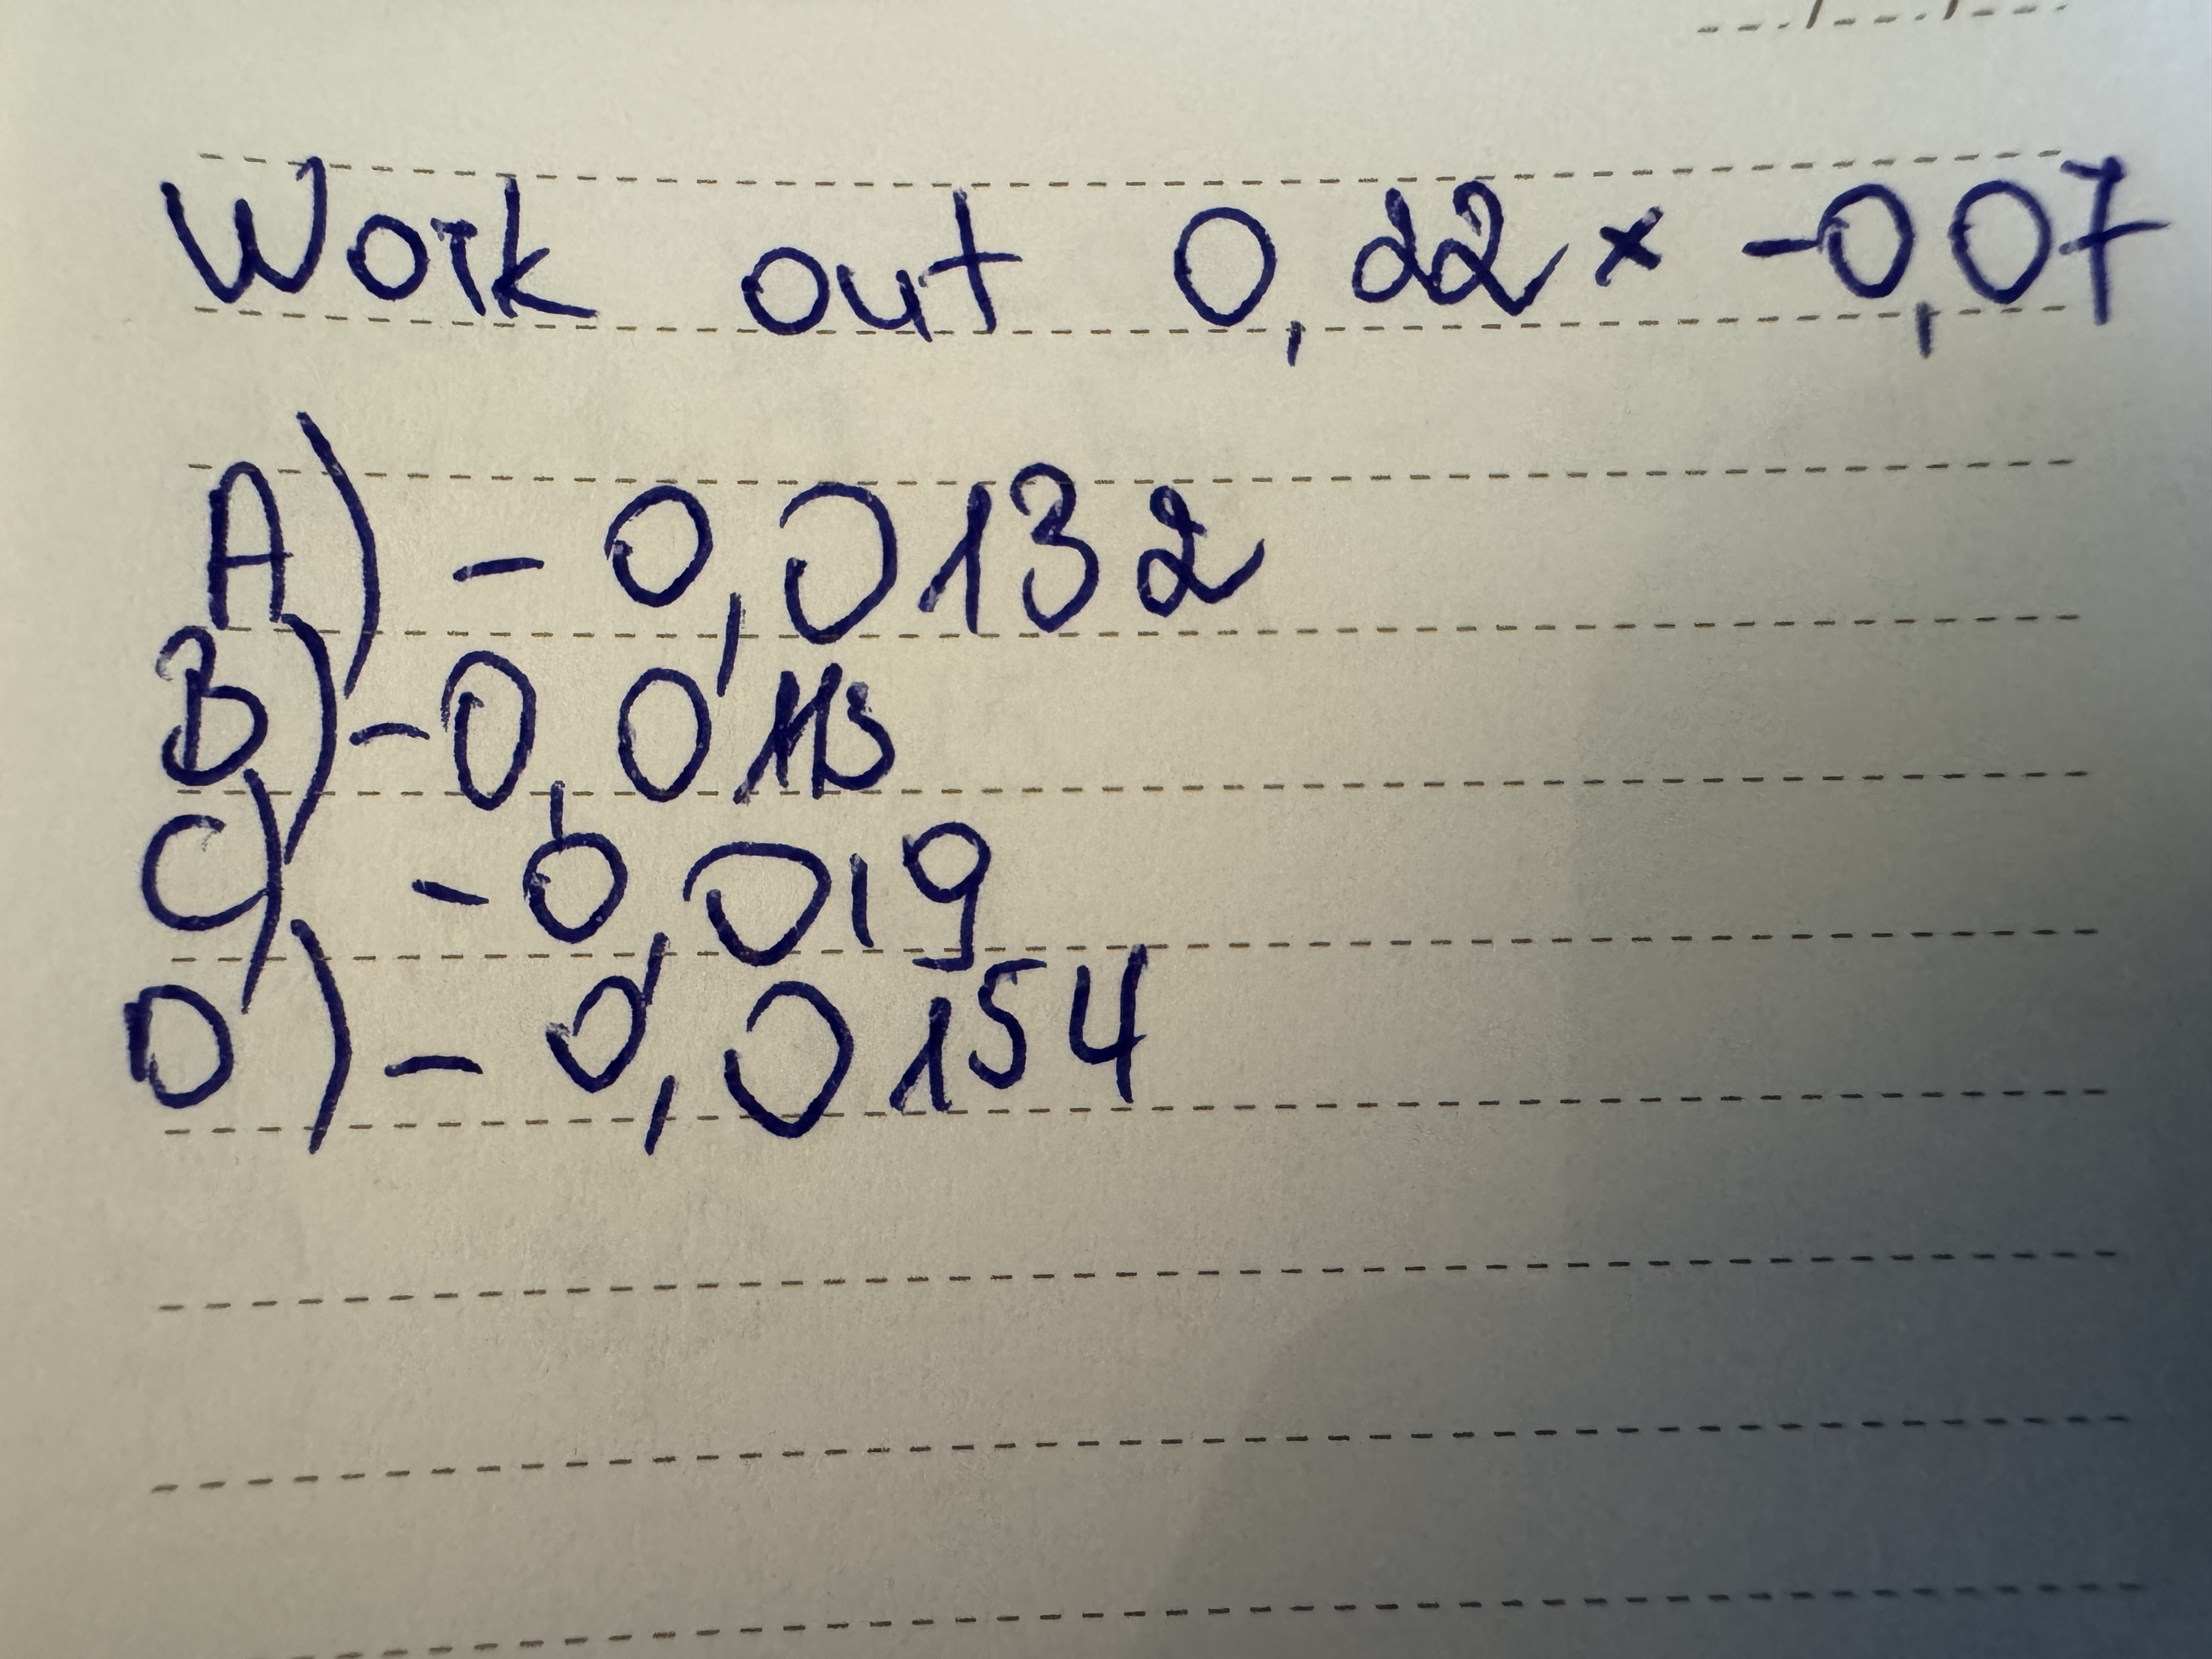 Work out 0,22 × -0,07
A) - 0,0132
B) -0,0113
C) -0,019
D) - 0,0154